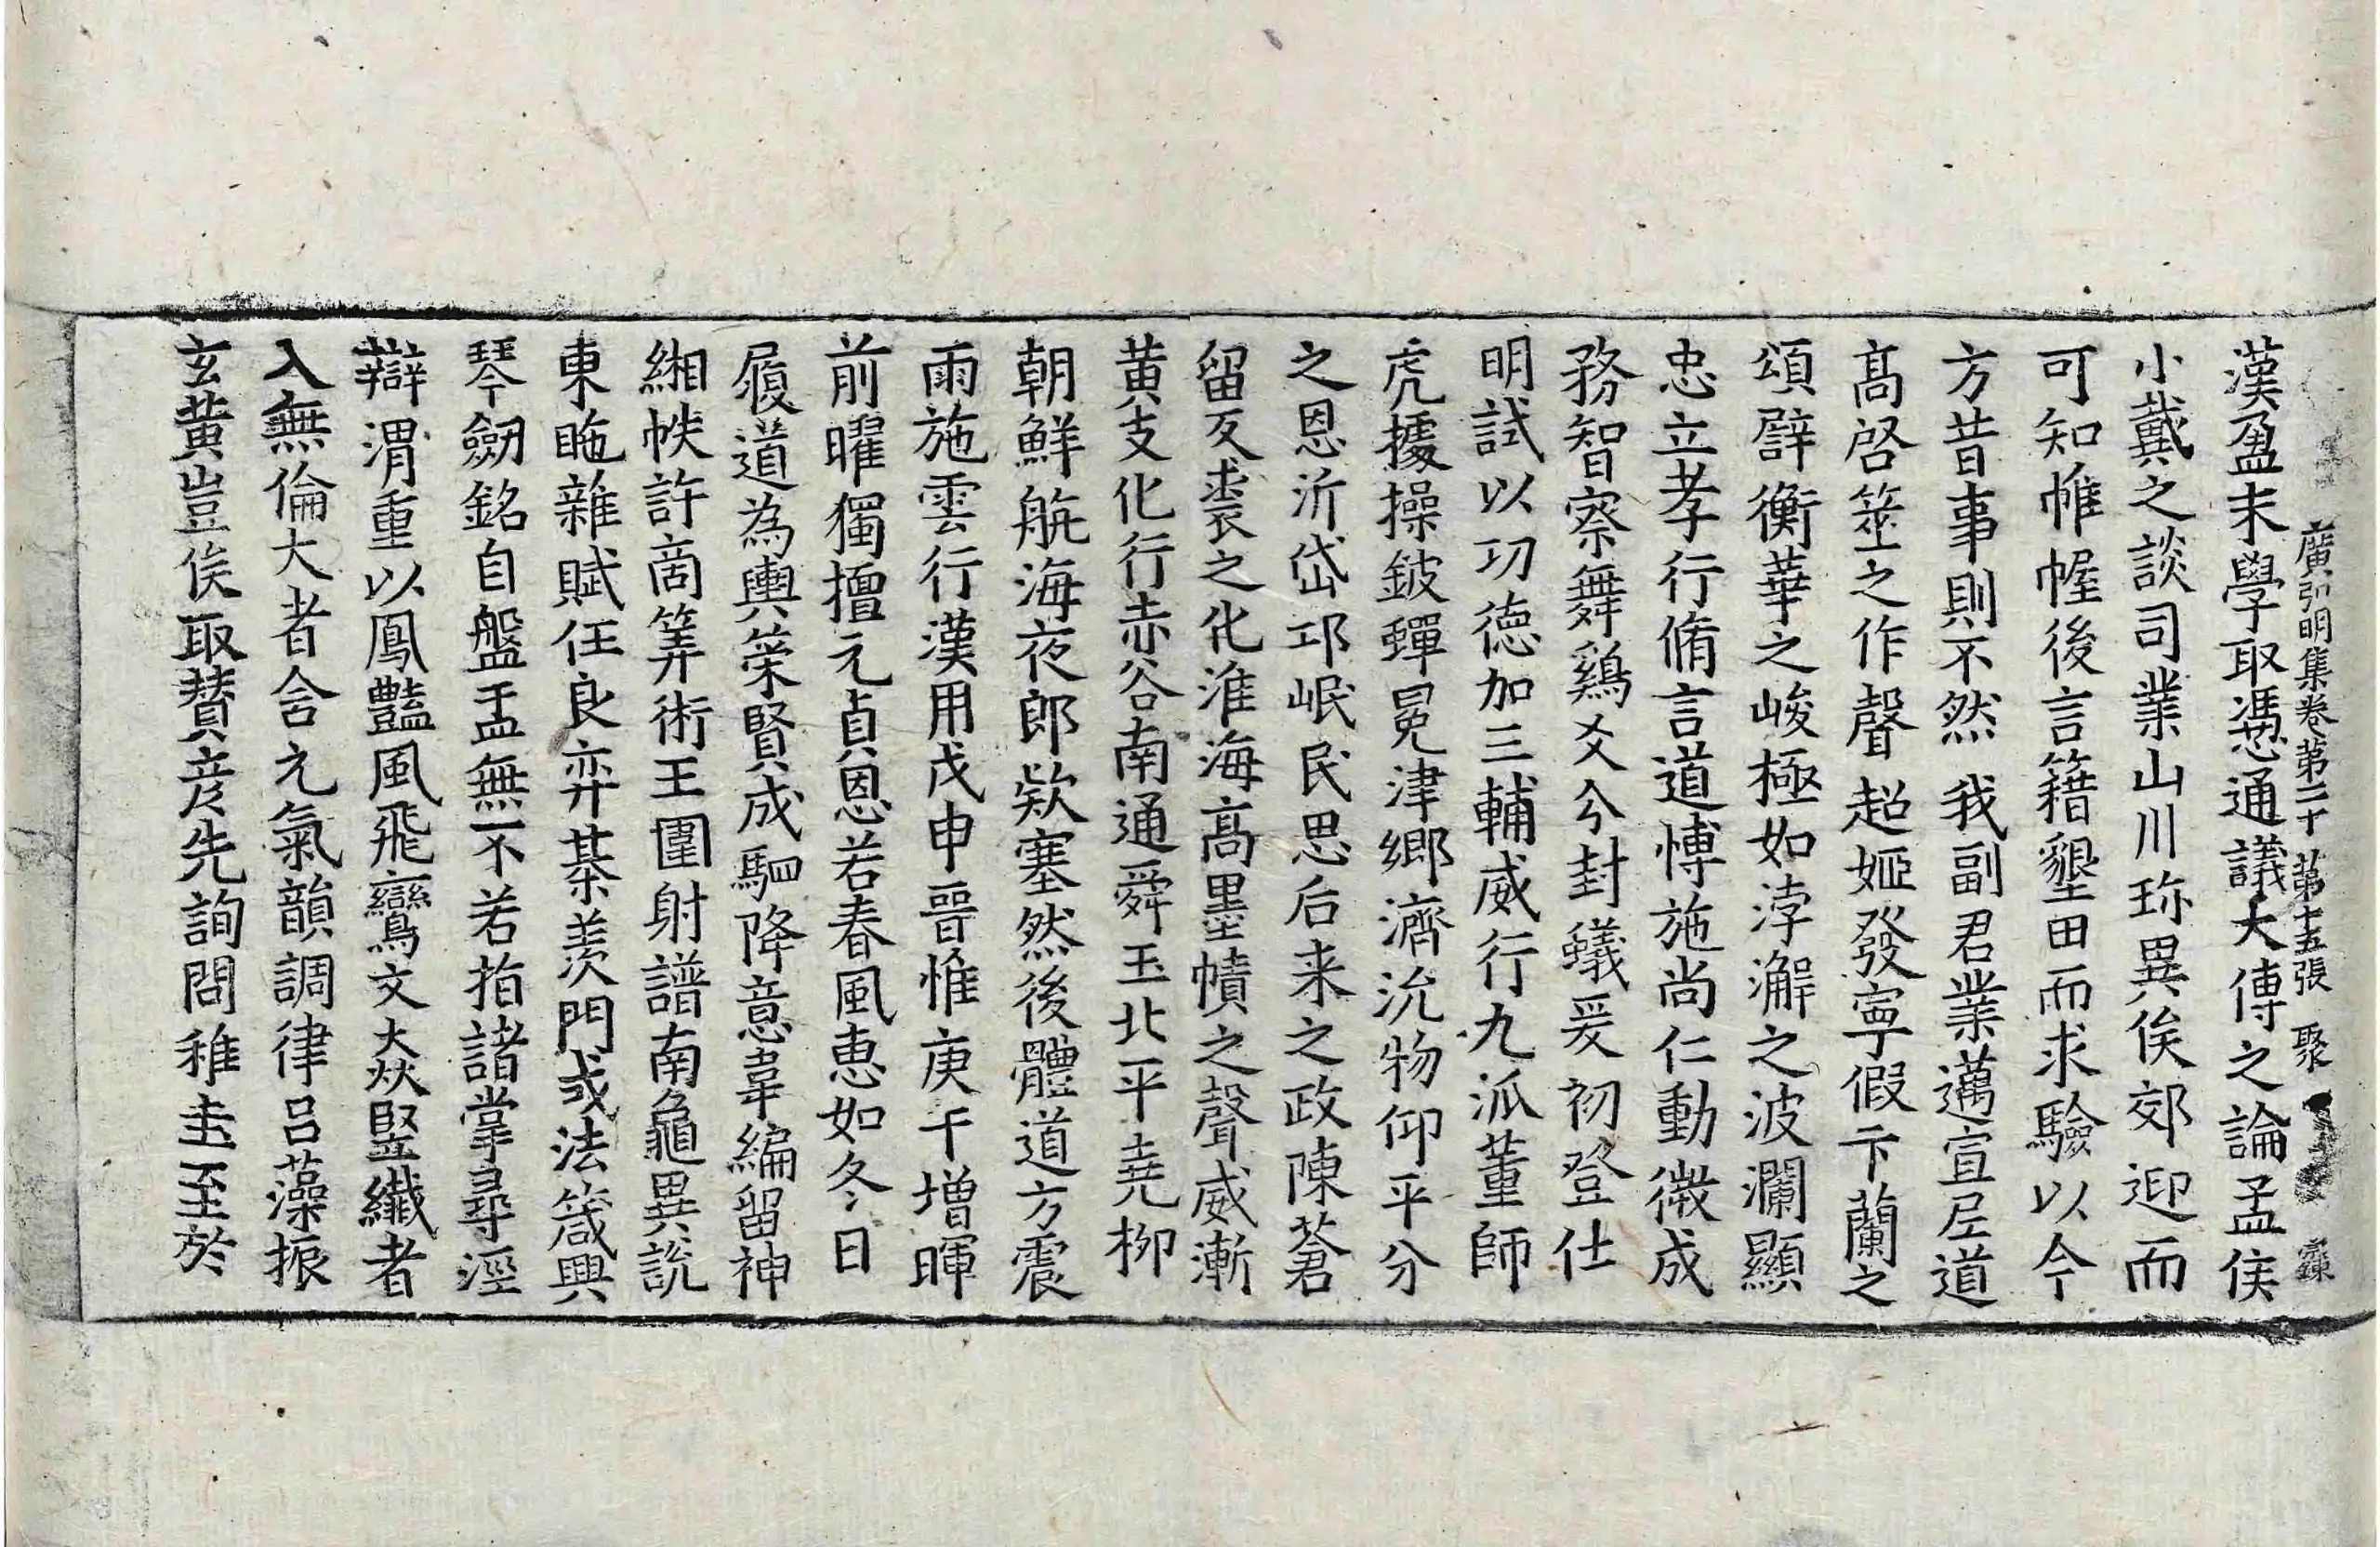 廣弘明集卷第二十 第十五張 聚
漢盈末學取憑通議大傳之論孟侯
小戴之談司業山川珎異俟郊迎而
可知帷幄後言籍墾田而求驗以今
方昔事則不然我副君業邁宣尼道
髙啓筮之作聲超姬發寧假卞蘭之
頌辟衡華之峻極如浡澥之波瀾顯
忠立孝行脩言道愽施尚仁動微成
務智察舞鷄爻分封蟻爰初登仕
明試以功德加三輔威行九派董師
虎據操鈹蟬冕津郷濟沇物仰平分
之恩沂岱邛岷民思后来之政陳蒼
留反裘之化淮海髙墨幘之聲威漸
黄支化行赤谷南通舜玉北平堯柳
朝鮮航海夜郎欵塞然後體道方震
雨施雲行漢用戊申晉惟庚午増暉
前曜獨擅元貞恩若春風恵如冬日
履道為輿策賢成駟降意韋編留神
緗帙許商筭術王圍射譜南龜異說
東䭾雜賦任良弈棊羨門式法箴興
琴劒銘自盤盂無不若指諸掌尋涇
辯渭重以鳳豔風飛鸞文猋竪纎者
入無倫大者含元氣韻調律吕藻振
玄黄豈俟取賛彦先詢問稚圭至於